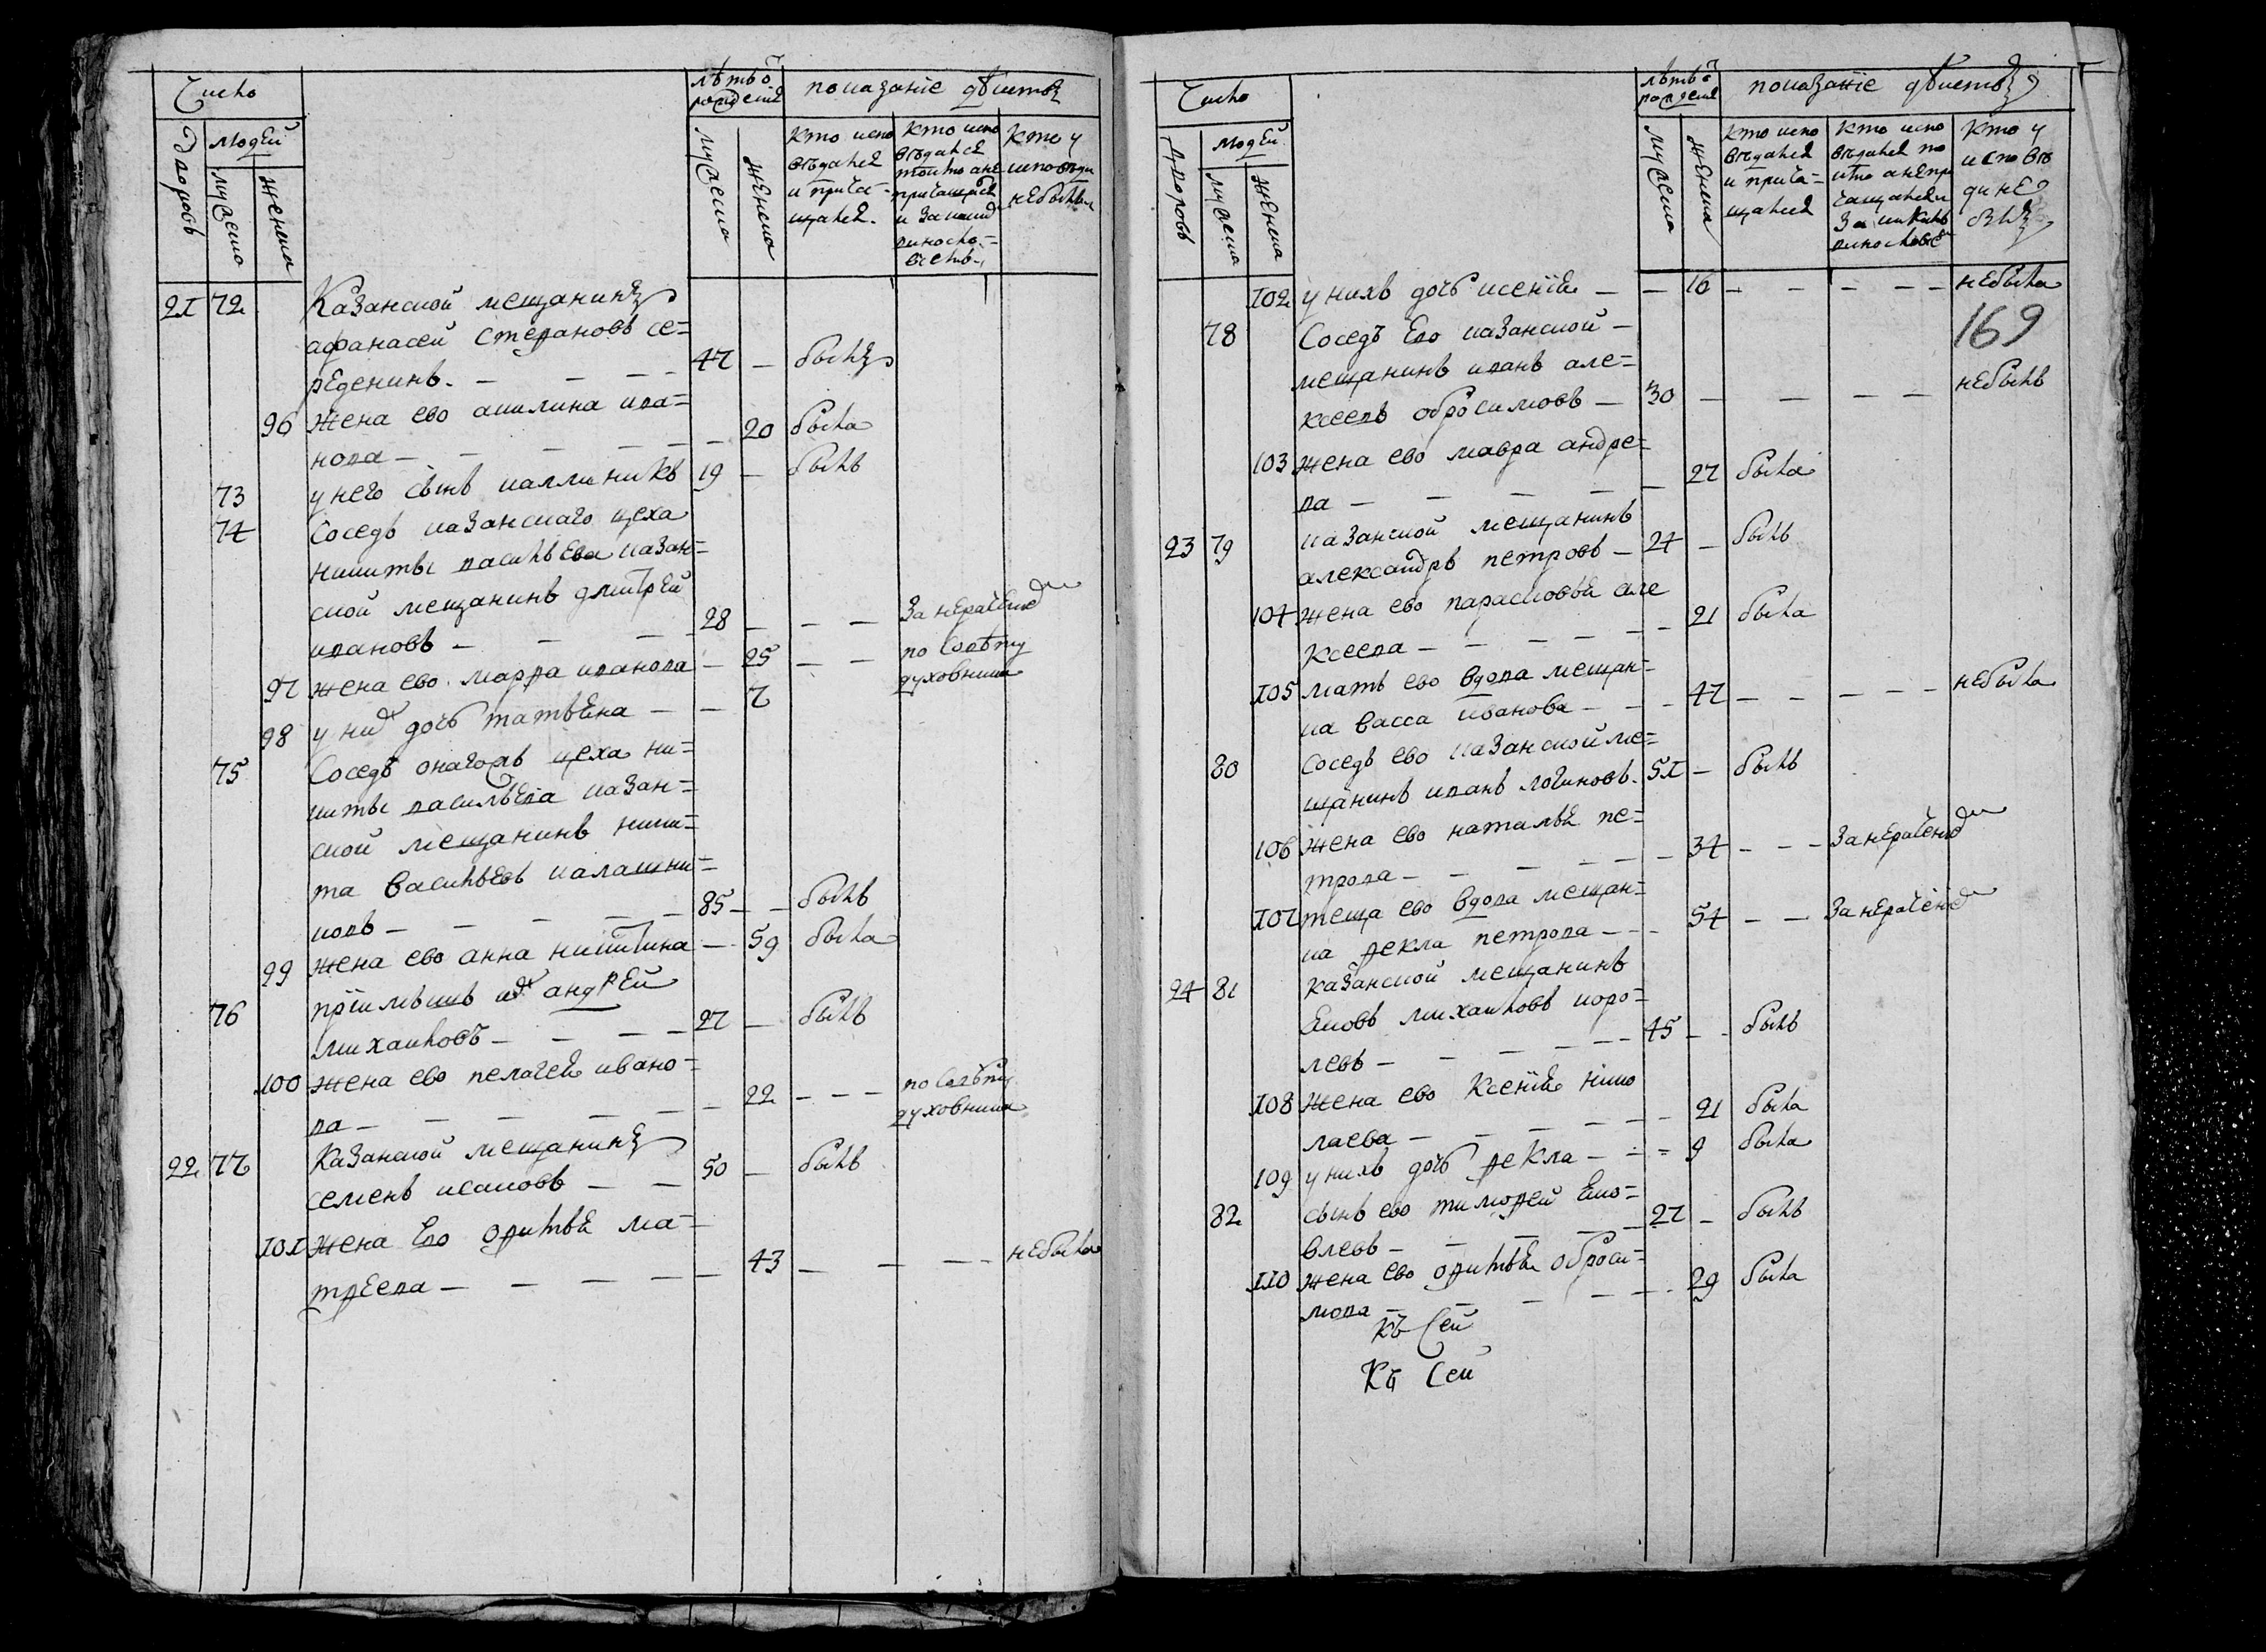 Число
лѣтъ ѿ
рожденїя
показанїе дѣйствъ
дворовъ
людей
мужеска
женска
мужеска
женска
кто испо
вѣдался
и прича-
щался.
кто испо
вѣдался
токмо а не
причащался
и за каки
виносло-
вїемъ
кто у
исповѣди
небылъ
21 72 Казанской мещанинъ
афанасей степановъ се=
реденинъ. — 47 — былъ
96 жена ево акилина ива=
нова — 20 была
73 у него сынъ каллиникъ 19 — былъ
74 Соседъ казанскаго цеха
никиты васильева казан=
ской мещанинъ дмитрей
ивановъ — 28 — за нерачение
97 жена ево марфа иванова — 25 — по совѣту
духовника
98 у них дочь татьяна — 7
75 Соседъ онагожъ цеха ни=
киты васильева казан=
ской мещанинъ ники=
та васильевъ калашни=
ковъ — 85 — былъ
99 жена ево анна никитина — 59 была
76 прїимышъ их андрей
михайловъ — 27 — былъ
100 жена ево пелагея ивано=
ва — 22 — по совѣту
духовника
22 77 Казанской мещанинъ
семенъ исаковъ — 50 — былъ
101 жена Ево офитья ма=
тфеева — 43 — небыла
Число
лѣтъ ѿ
рожденїя
показанїе дѣйствъ
дворовъ
людей
мужеска
женска
мужеска
женска
кто испо
вѣдался
и прича=
щался
кто испо
вѣдался то
кмо а непри
чащался и
за какимъ
винословїе
кто у
испове
ди не
былъ
102 у нихъ дочь ксенїя — 16 — небыла
169
78 Соседъ Ево казанской —
мещанинъ иванъ але=
ксеевъ обросимовъ — 30 — небылъ
103 жена ево мавра андре=
ва — 27 была
23 79 казанской мещанинъ
александръ петровъ — 24 — былъ
104 жена ево парасковья але
ксеева — 21 была
105 мать ево вдова мещан=
ка васса иванова — 47 — небыла
80 соседъ ево казанской ме=
щанинъ иванъ логиновъ. 51 — былъ
106 жена ево наталья пе=
трова — 34 — за нерачение
107 теща ево вдова мещан=
ка фекла петрова — 54 — за нерачение
24 81 казанской мещанинъ
Яковъ михайловъ коро=
левъ — 45 — былъ
108 жена ево ксенїя нико
лаева — 21 была
109 у нихъ дочь фекла — 9 была
82 сынъ ево тимофей яко=
влевъ — 27 — былъ
110 жена ево офитья оброси=
мова — 29 была
Къ Сей
Къ Сей